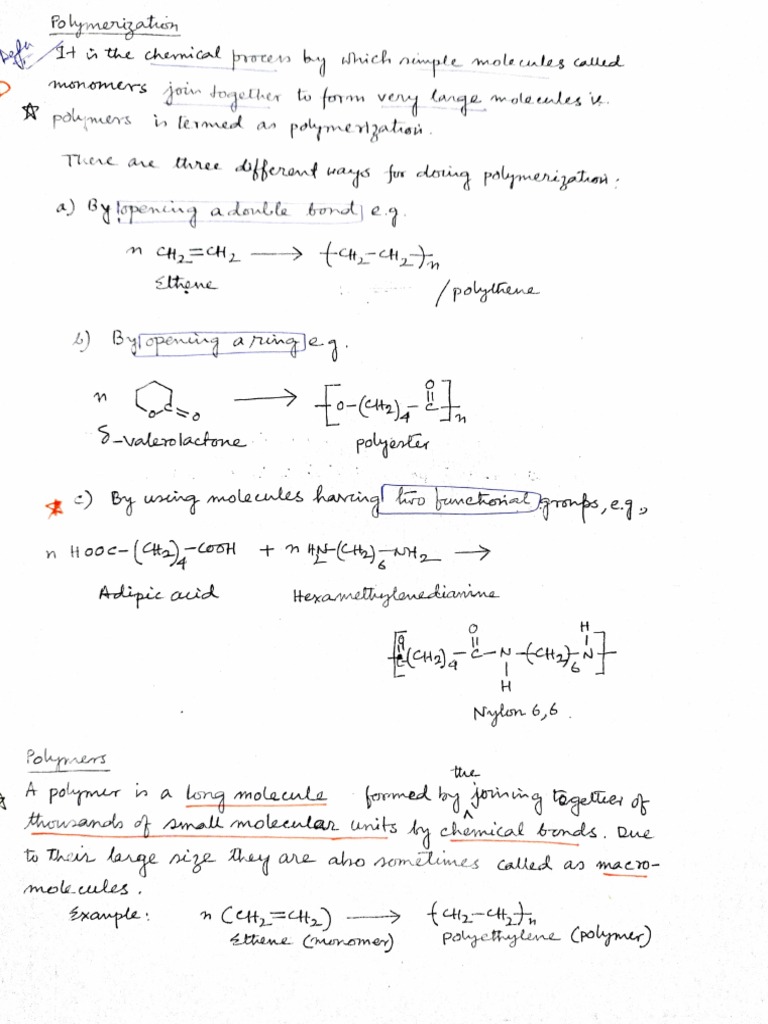 Polymerization
Defn It is the chemical process by which simple molecules called
monomers join together to form very large molecules ie.
polymers is termed as polymerization.
There are three different ways for doing polymerization:
a) By opening a double bond e.g.
n CH2=CH2 ⟶ -(CH2-CH2)-n
Ethene
/polythene
b) By opening a ring e.g.
n O C=O ⟶ -[O-(CH2)4-C(=O)]-n
δ-valerolactone polyester
c) By using molecules having two functional groups, e.g.,
n HOOC-(CH2)4-COOH + n H2N-(CH2)6-NH2 ⟶
Adipic acid Hexamethylenediamine
-[C(=O)-(CH2)4-C(=O)-N(H)-(CH2)6-N(H)]-
Nylon 6,6.
Polymers
A polymer is a long molecule formed by the joining together of
thousands of small molecular units by chemical bonds. Due
to their large size they are also sometimes called as macro-
molecules.
Example: n(CH2=CH2) ⟶ -(CH2-CH2)-n
Ethene (monomer) polyethylene (polymer)